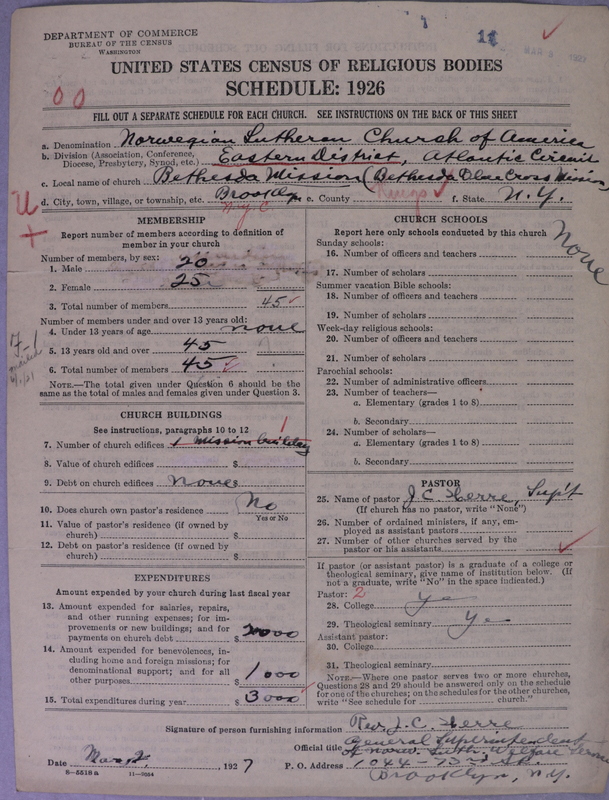 DEPARTMENT OF COMMERCE
BUREAU OF THE CENSUS
WASHINGTON
UNITED STATES CENSUS OF RELIGIOUS BODIES
SCHEDULE: 1926
FILL OUT A SEPARATE SCHEDULE FOR EACH CHURCH. SEE INSTRUCTIONS ON THE BACK OF THIS SHEET
a. Denomination Norwegian Lutheran Church of America
b. Division (Association, Conference, Diocese, Presbytery, Synod, etc.) Eastern District, Atlantic Circuit
c. Local name of church Bethesda Mission (Bethesda Blue Cross Mission
d. City, town, village, or township, etc. Brooklyn e. County Kings f. State N.Y.
N.Y.C
MEMBERSHIP
Report number of members according to definition of member in your church
Number of members, by sex:
1. Male 20
2. Female 25
3. Total number of members 45
Number of members under and over 13 years old:
4. Under 13 years of age none
5. 13 years old and over 45
6. Total number of members 45
NOTE.—The total given under Question 6 should be the same as the total of males and females given under Question 3.
CHURCH BUILDINGS
See instructions, paragraphs 10 to 12
7. Number of church edifices 1 mission building
8. Value of church edifices $
9. Debt on church edifices none $
10. Does church own pastor's residence No
Yes or No
11. Value of pastor's residence (if owned by church) $
12. Debt on pastor's residence (if owned by church) $
EXPENDITURES
Amount expended by your church during last fiscal year
13. Amount expended for salaries, repairs, and other running expenses; for improvements or new buildings; and for payments on church debt $ 2000
14. Amount expended for benevolences, including home and foreign missions; for denominational support; and for all other purposes $ 1000
15. Total expenditures during year $ 3000
CHURCH SCHOOLS
Report here only schools conducted by this church
None
Sunday schools:
16. Number of officers and teachers
17. Number of scholars
Summer vacation Bible schools:
18. Number of officers and teachers
19. Number of scholars
Week-day religious schools:
20. Number of officers and teachers
21. Number of scholars
Parochial schools:
22. Number of administrative officers
23. Number of teachers—
a. Elementary (grades 1 to 8)
b. Secondary
24. Number of scholars—
a. Elementary (grades 1 to 8)
b. Secondary
PASTOR
25. Name of pastor J.C. Herre, Sup't
(If church has no pastor, write "None")
26. Number of ordained ministers, if any, employed as assistant pastors
27. Number of other churches served by the pastor or his assistants
If pastor (or assistant pastor) is a graduate of a college or theological seminary, give name of institution below. (If not a graduate, write "No" in the space indicated.)
Pastor: 2
28. College
29. Theological seminary
Assistant pastor:
30. College
31. Theological seminary
NOTE.—Where one pastor serves two or more churches, Questions 28 and 29 should be answered only on the schedule for one of the churches; on the schedules for the other churches, write "See schedule for church."
Signature of person furnishing information Rev. J.C. Herre
Official title General Superintendent
of Norw. Luth. Welfare
Date Mar. 2, 1927 P. O. Address 1044-73rd St.
8-5518a 11-9584 Brooklyn, N.Y.